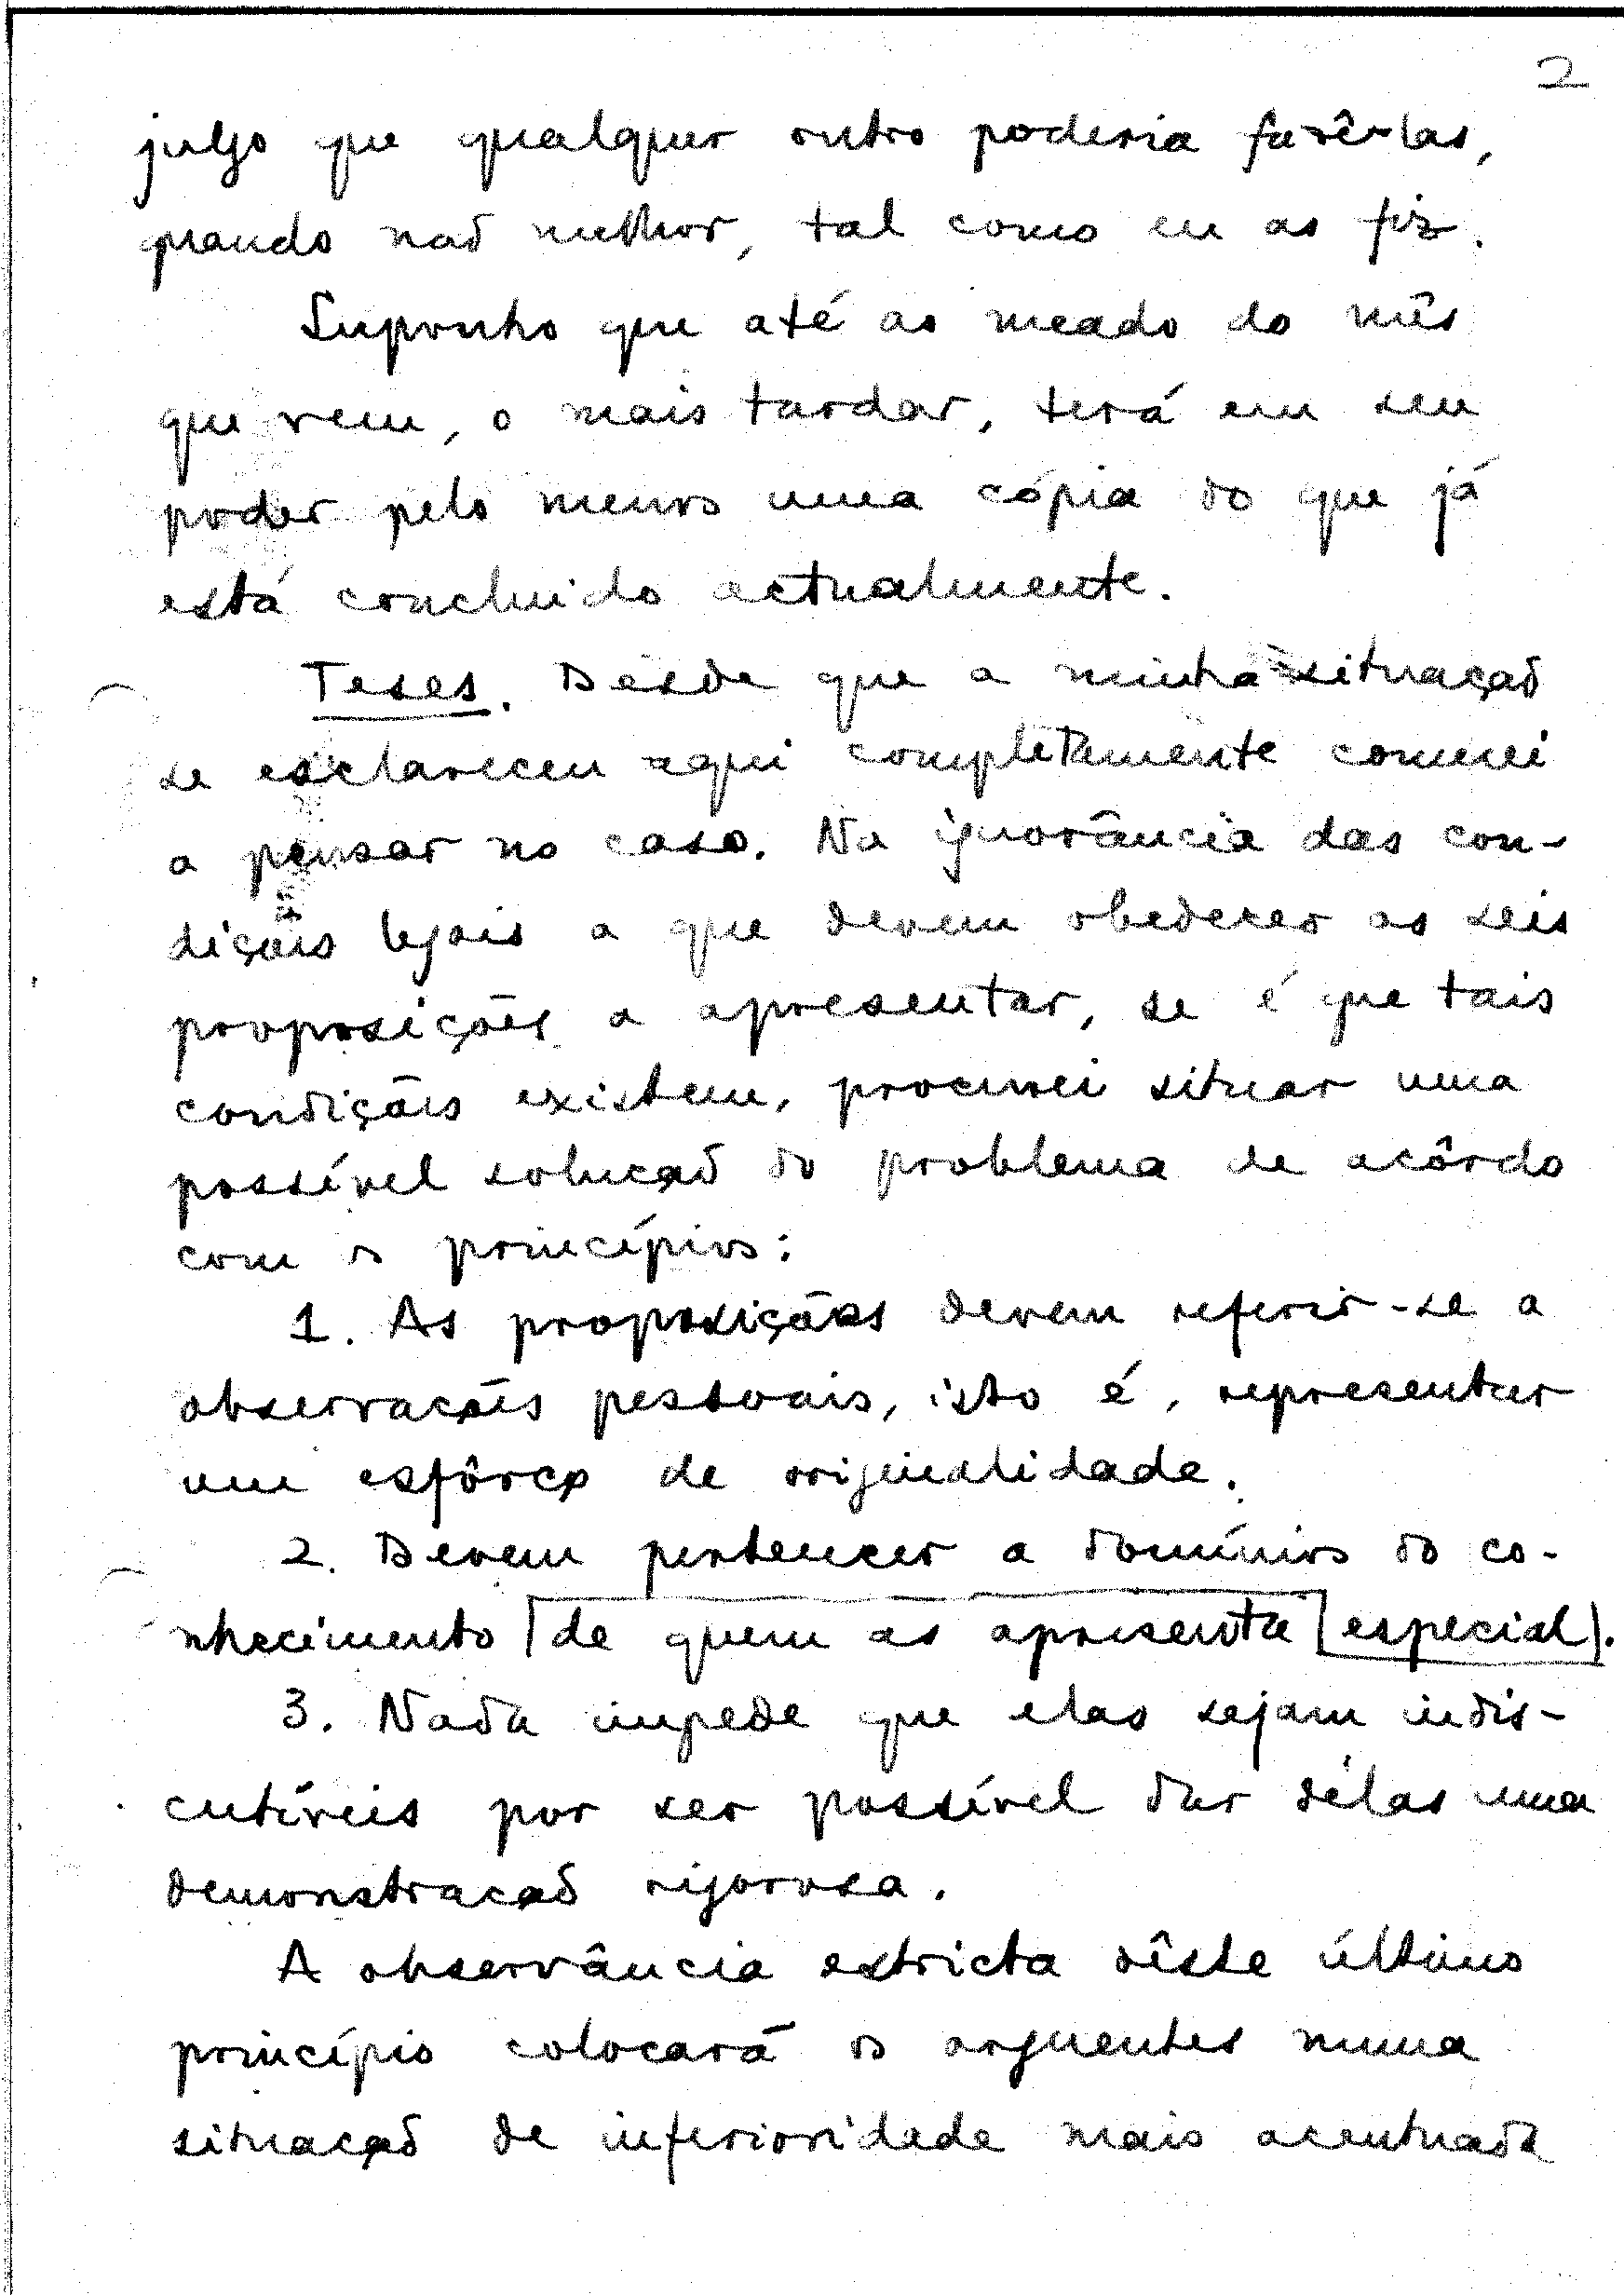 2
julgo que qualquer outro poderia fazê-las,
quando não melhor, tal como eu as fiz.
Suponho que até ao meado do mês
que vem, o mais tardar, terá em seu
poder pelo menos uma cópia do que já
está concluido actualmente.
Teses. Desde que a minha situação
se esclareceu aqui completamente comecei
a pensar no caso. Na ignorância das con-
dições legais a que devem obedecer as seis
proposições a apresentar, se é que tais
condições existem, procurei situar uma
possível solução do problema de acôrdo
com os princípios:
1. As proposições devem referir-se a
observações pessoais, isto é, representar
um esfôrço de originalidade.
2. Devem pertencer a domínios do co-
nhecimento de quem as apresenta especial.
3. Nada impede que elas sejam indis-
cutíveis por ser possível dar délas uma
demonstração rigorosa.
A observância estricta dêste último
princípio colocará os arguentes numa
situação de inferioridade mais acentuada